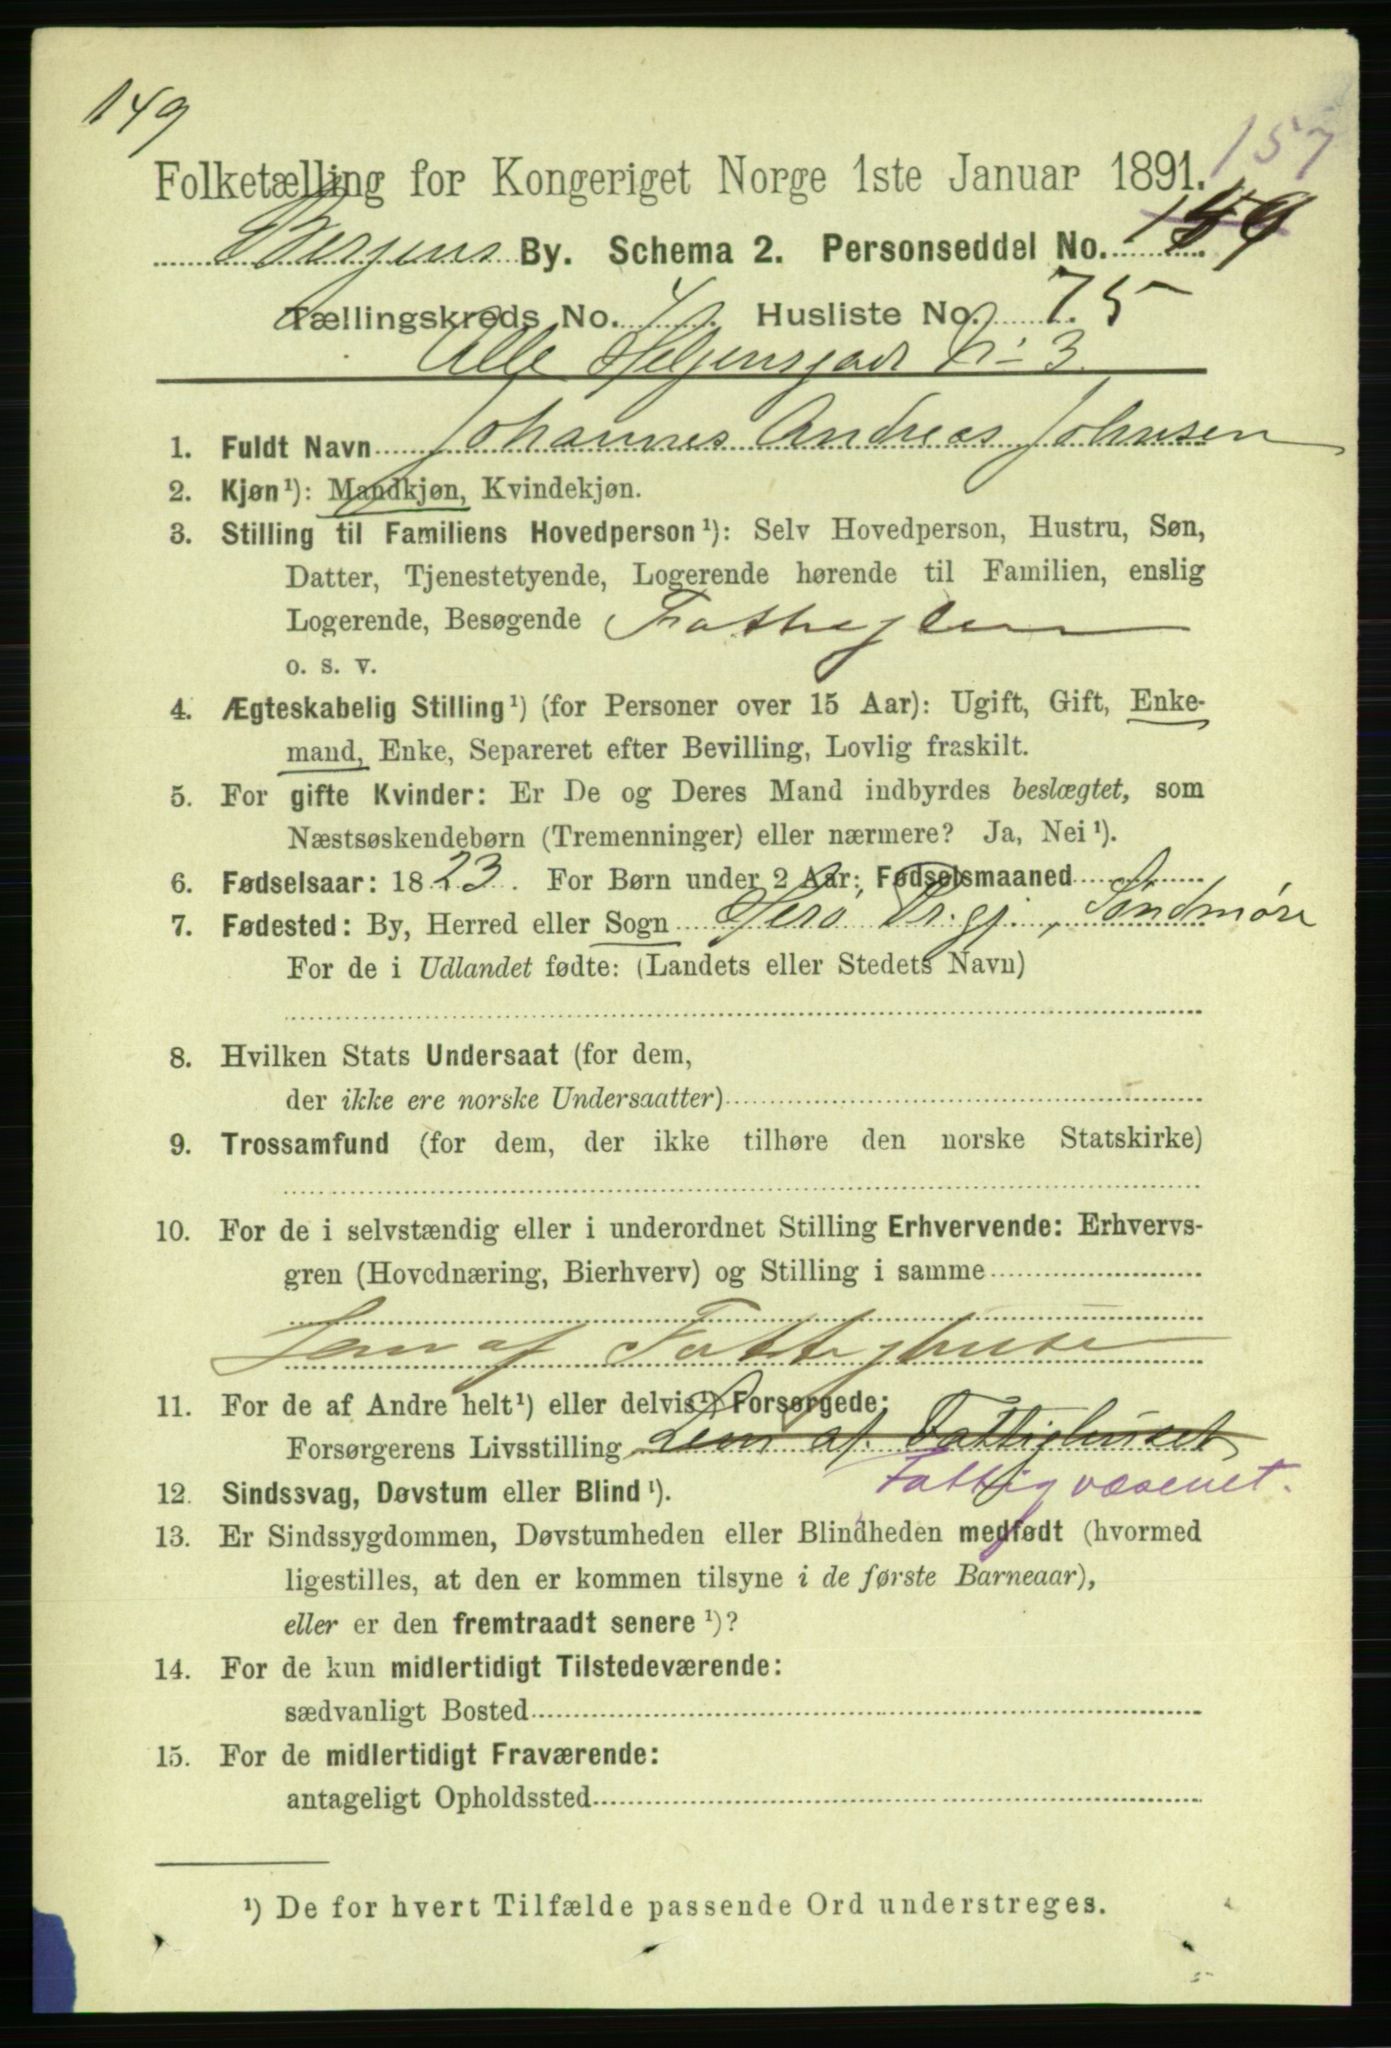 149
157
Folketælling for Kongeriget Norge 1ste Januar 1891.
Bergens By. Schema 2. Personseddel No. 159
Tællingskreds No. 4. Husliste No. 75
Alle Helgensgade No 3.
1. Fuldt Navn Johannes Andreas Johnsen
2. Kjøn¹): Mandkjøn, Kvindekjøn.
3. Stilling til Familiens Hovedperson¹): Selv Hovedperson, Hustru, Søn,
Datter, Tjenestetyende, Logerende hørende til Familien, enslig
Logerende, Besøgende Fattiglem
o. s. v.
4. Ægteskabelig Stilling¹) (for Personer over 15 Aar): Ugift, Gift, Enke-
mand, Enke, Separeret efter Bevilling, Lovlig fraskilt.
5. For gifte Kvinder: Er De og Deres Mand indbyrdes beslægtet, som
Næstsøskendebørn (Tremenninger) eller nærmere? Ja, Nei¹).
6. Fødselsaar: 1823. For Børn under 2 Aar: Fødselsmaaned
7. Fødested: By, Herred eller Sogn Herø Pr.gj., Søndmøre
For de i Udlandet fødte: (Landets eller Stedets Navn)
8. Hvilken Stats Undersaat (for dem,
der ikke ere norske Undersaatter)
9. Trossamfund (for dem, der ikke tilhøre den norske Statskirke)
10. For de i selvstændig eller i underordnet Stilling Erhvervende: Erhvervs-
gren (Hovednæring, Bierhverv) og Stilling i samme
Lem af Fattighuse
11. For de af Andre helt¹) eller delvis¹) Forsørgede:
Forsørgerens Livsstilling Lem af Fattighuset
Fattigvæsenet.
12. Sindssvag, Døvstum eller Blind¹).
13. Er Sindssygdommen, Døvstumheden eller Blindheden medfødt (hvormed
ligestilles, at den er kommen tilsyne i de første Barneaar),
eller er den fremtraadt senere¹)?
14. For de kun midlertidigt Tilstedeværende:
sædvanligt Bosted
15. For de midlertidigt Fraværende:
antageligt Opholdssted
¹) De for hvert Tilfælde passende Ord understreges.